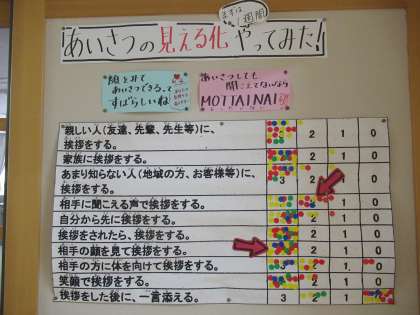 まずは
1週間
あいさつの見える化やってみた!
顔を見て
あいさつできるって
すばらしいね!
あいさつしても
聞こえてないなら
MOTTAINAI
親しい人(友達、先輩、先生等)に、
挨拶をする。
2 1 0
家族に挨拶をする。
2 1 0
あまり知らない人(地域の方、お客様等)に、
挨拶をする。
3 2 1 0
相手に聞こえる声で挨拶をする。
1 0
自分から先に挨拶をする。
2 1 0
挨拶をされたら、挨拶をする。
2 1 0
相手の顔を見て挨拶をする。
2 1 0
相手の方に体を向けて挨拶をする。
3 2 1 0
笑顔で挨拶をする。
2 1 0
挨拶をした後に、一言添える。
3 2 1